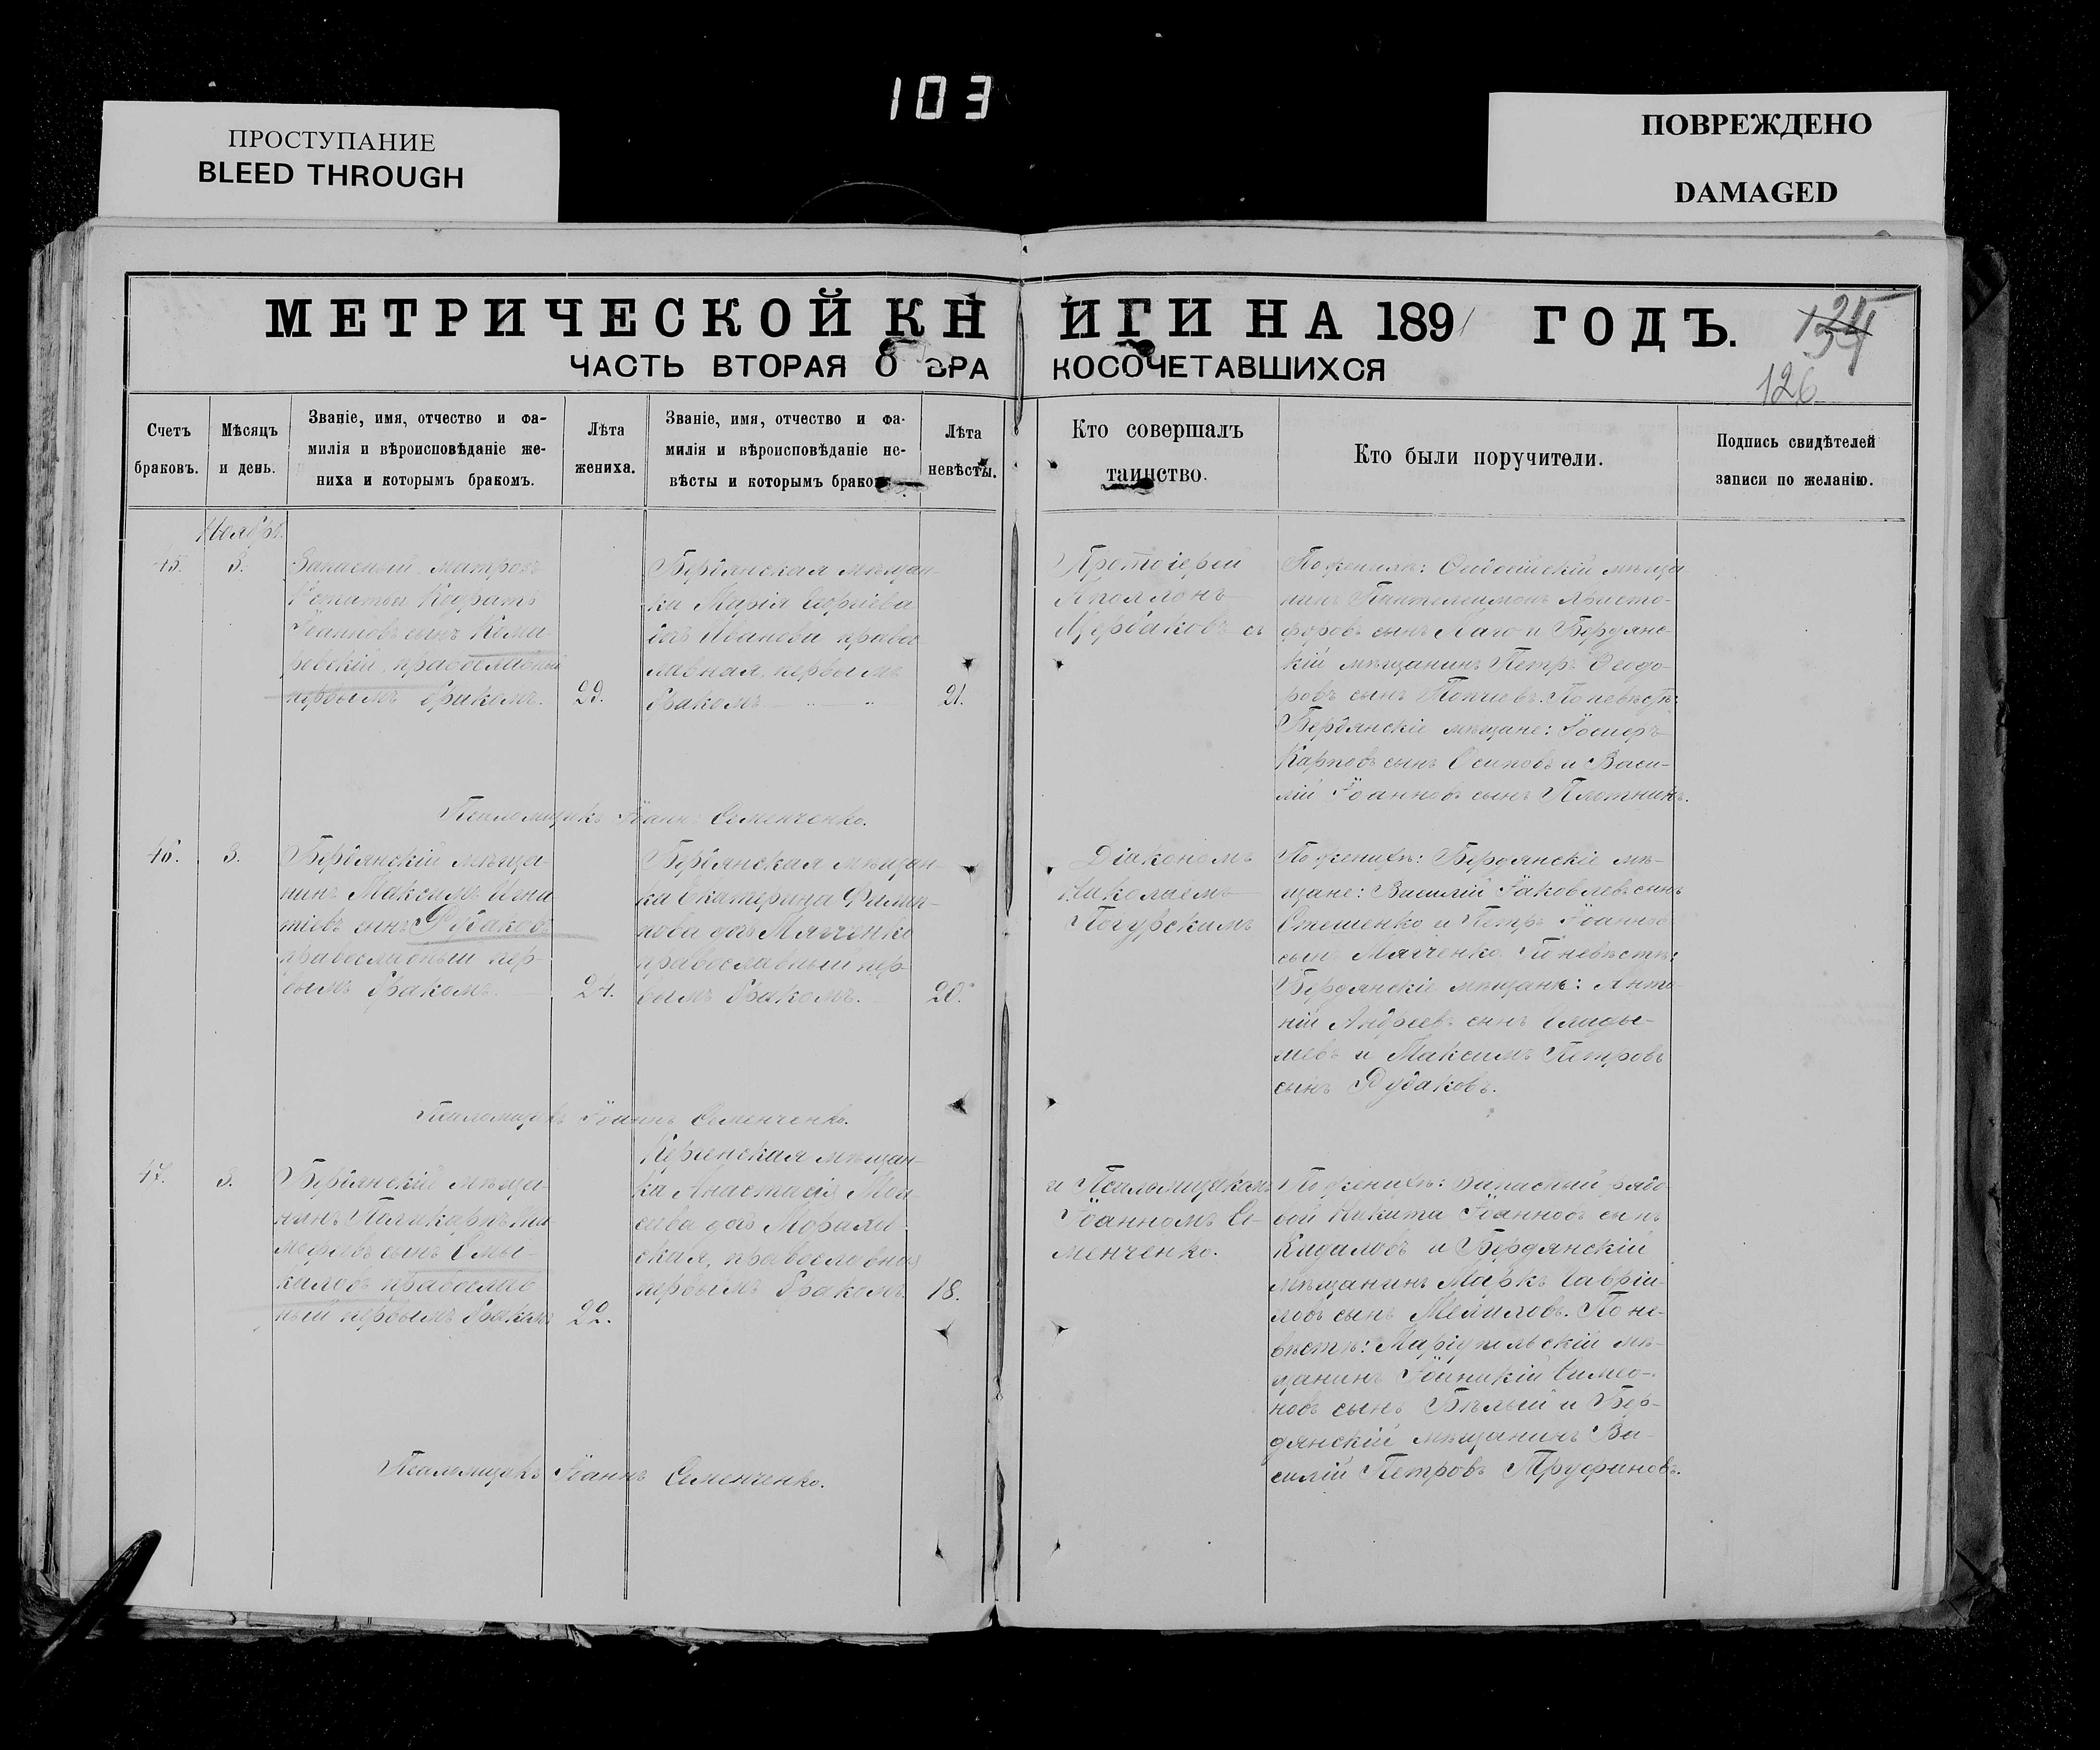 103
ПРОСТУПАНИЕ
BLEED THROUGH
ПОВРЕЖДЕНО
DAMAGED
МЕТРИЧЕСКОЙ КНИГИ НА 1891 ГОДЪ.
ЧАСТЬ ВТОРАЯ О БРАКОСОЧЕТАВШИХСЯ
134
126
Счетъ браковъ.
Мѣсяцъ и день.
Званіе, имя, отчество и фа-
милія и вѣроисповѣданіе же-
ниха и которымъ бракомъ.
Лѣта жениха.
Званіе, имя, отчество и фа-
милія и вѣроисповѣданіе не-
вѣсты и которымъ бракомъ.
Лѣта невѣсты.
Кто совершалъ таинство.
Кто были поручители.
Подпись свидѣтелей
записи по желанію.
Ноябрь.
45.
3.
Запасный матросъ
Кодратъ
Іоанновъ сынъ Кома-
ровскій, православный
первымъ бракомъ.
29.
Бердянская мѣщан-
ка Марія Георгіева
православная, первымъ
бракомъ
21.
Протоіерей
Аполлонъ
Щербаковъ съ
По женихѣ: мѣща-
нинъ Пантелеимонъ Христо-
форовъ сынъ и Бердянс-
кій мѣщанинъ Петръ Ѳеодо-
ровъ сынъ По невѣстѣ:
Бердянскіе мѣщане: Іосифъ
Карповъ сынъ Осиповъ и Васи-
лій Іоанновъ сынъ Плотникъ.
Псаломщикъ Іоаннъ Семенченко.
46.
3.
Бердянскій мѣща-
нинъ Максимъ Игна-
тіевъ сынъ Рудаковъ
православный пер-
вымъ бракомъ.
24.
Бердянская мѣщан-
ка Екатерина Филип-
пова Мягченко
православный пер-
вымъ бракомъ.
20.
Діакономъ
Николаемъ
По женихѣ: Бердянскіе мѣ-
щане: Василій Іаковлевъ сынъ
и Петръ Іоанновъ
сынъ Мягченко. По невѣстѣ:
Бердянскіе мѣщане: Анто-
ній Андреевъ сынъ
и Максимъ Петровъ
сынъ Рудаковъ.
Псаломщикъ Іоаннъ Семенченко.
47.
3.
Бердянскій мѣща-
нинъ Поликарпъ Ти-
мофеевъ сынъ
православ-
ный первымъ бракомъ
22.
мѣщан-
ка Анастасія Мои-
сеева
православная
первымъ бракомъ.
18.
и Псаломщикомъ
Іоанномъ Се-
менченко.
По женихѣ: Запасный рядо-
вой Никита Іоанновъ сынъ
и Бердянскій
мѣщанинъ Маркъ Гавріи-
ловъ сынъ По не-
вѣстѣ: Маріупольскій мѣ-
щанинъ Симео-
новъ сынъ Бѣлый и Бер-
дянскій мѣщанинъ Ва-
силій Петровъ Труфановъ.
Псаломщикъ Іоаннъ Семенченко.